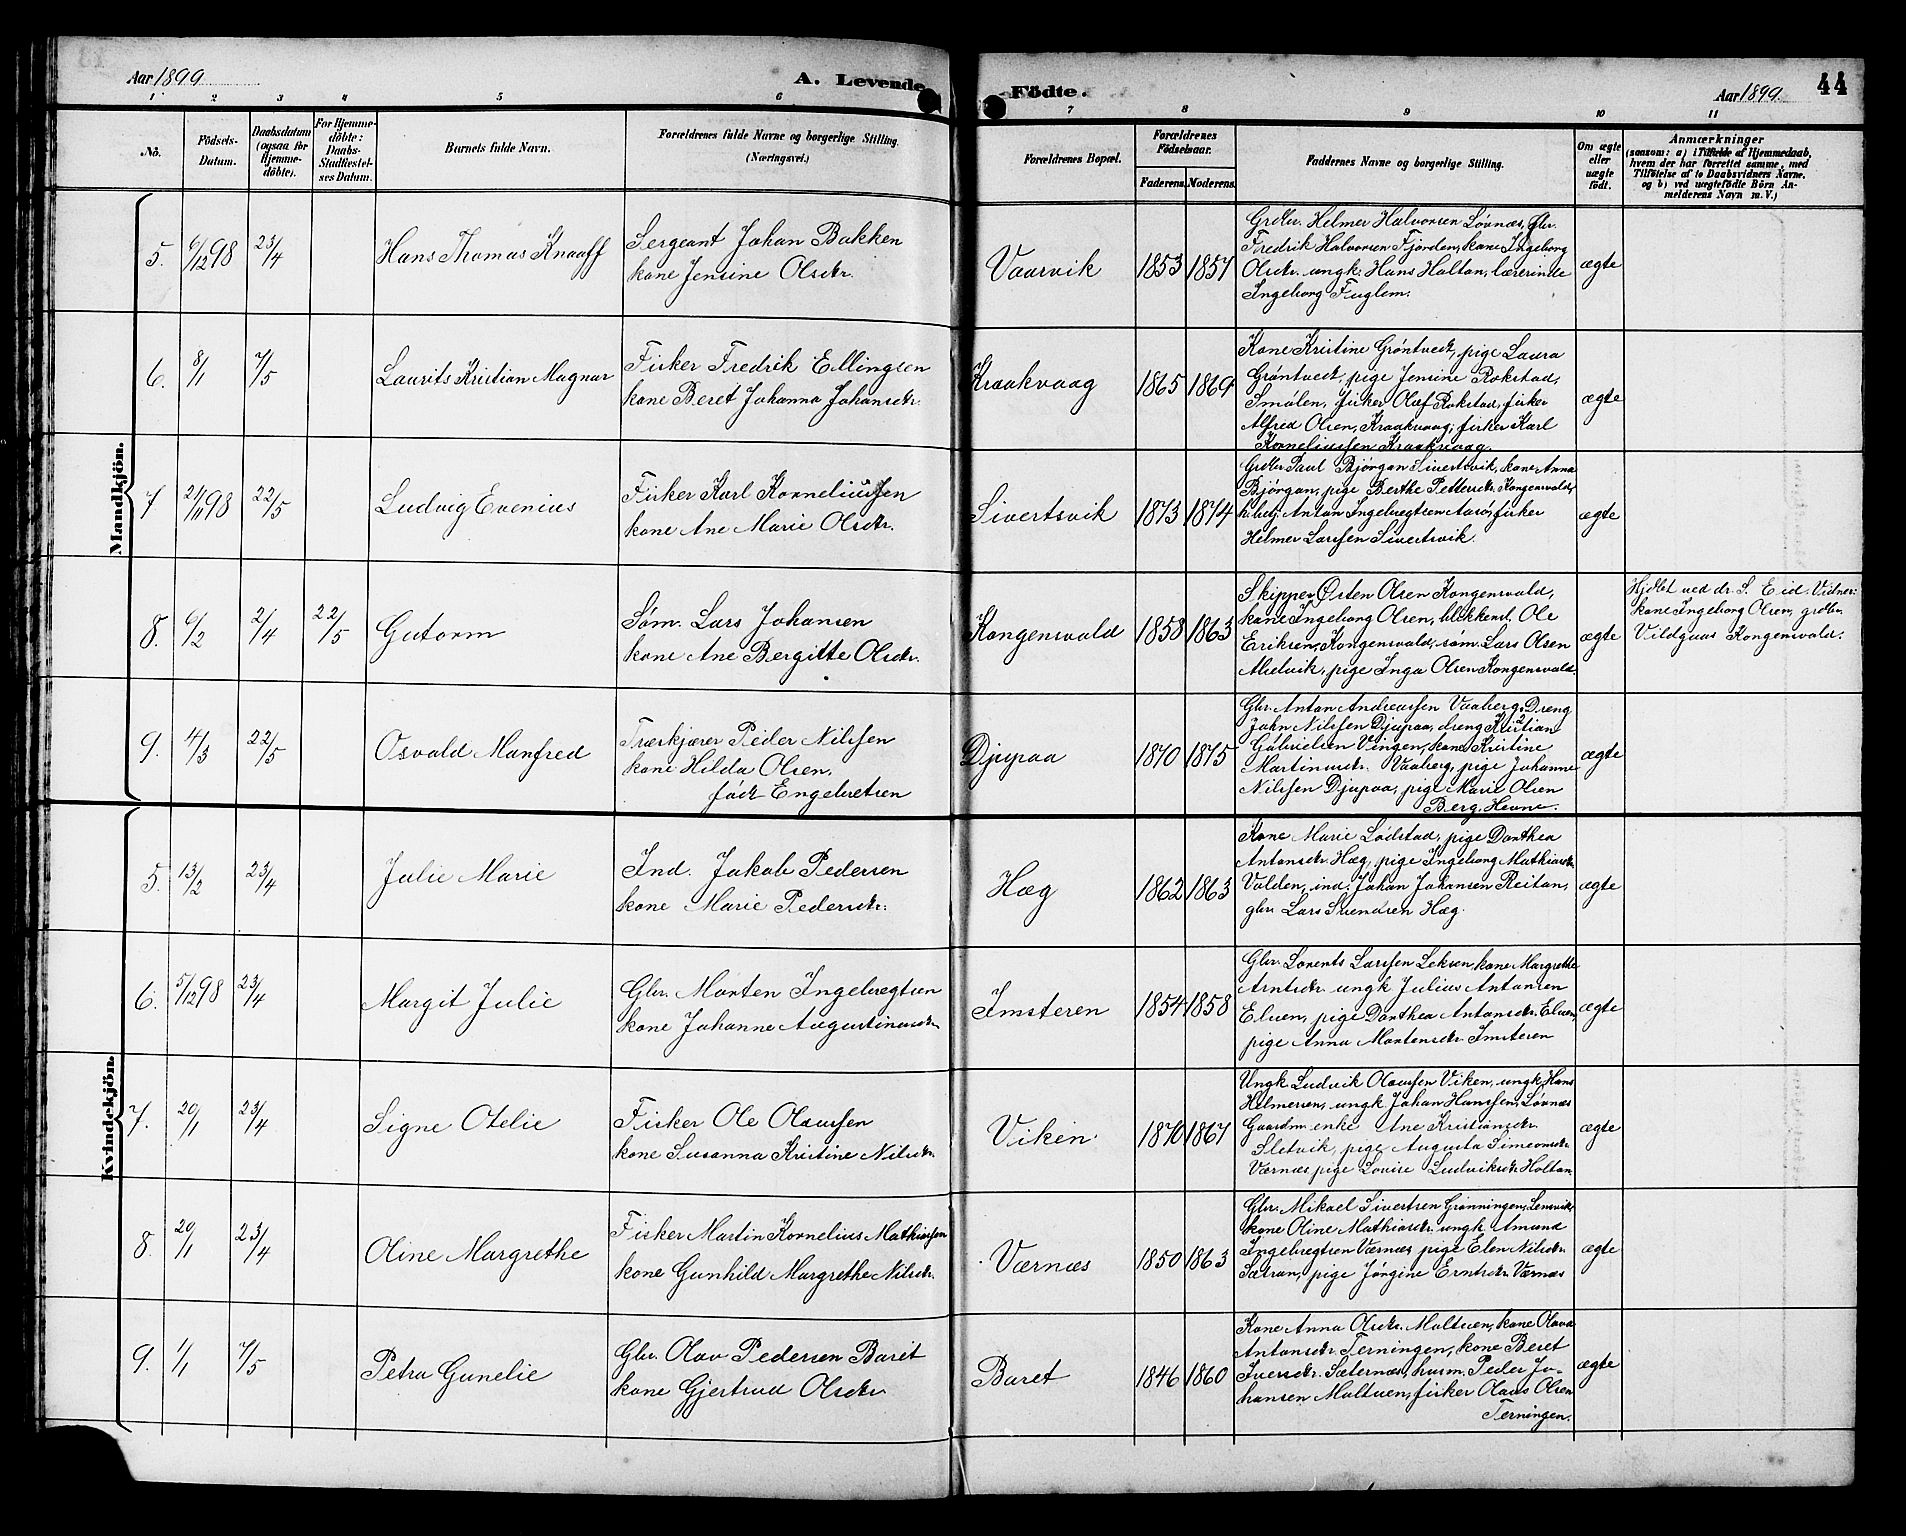 Aar 1899
A. Levende
Födte.
Aar 1899.
44
1 2 3 4 5 6 7 8 9 10 11
No.
Födsels-
Datum.
Daabsdatum
(ogsaa for
Hjemme-
döbte).
For Hjemme-
döbte:
Daabs-
Stadfæstel-
ses Datum.
Barnets fulde Navn.
Forældrenes fulde Navne og borgerlige Stilling.
(Næringsvei.)
Forældrenes Bopæl.
Forældrenes
Födselsaar.
Faderens. Moderens.
Faddernes Navne og borgerlige Stilling.
Om ægte
eller
uægte
födt.
Anmærkninger
(saasom: a) i Tilfælde af Hjemmedaab,
hvem der har forrettet samme, med
Tilföielse af to Daabsvidners Navne.
og b) ved uægtefödte Börn An-
melderens Navn m. V.)
Mandkjön.
5. 6/12 98 23/4
Hans Thomas Knaoff
Sergeant Johan Bakken
kone Jensine Olsdtr.
Vaarvik
1853 1857
Grdbr. Helmer Halvorsen Løvnæs, Gbr.
Fredrik Halvorsen Fjorden, kone Ingeborg
Olsdtr. ungk. Hans Holtan, lærerinde
Ingeborg Fuglem.
ægte
6. 8/1 7/5
Laurits Kristian Magnar
Fisker Fredrik Ellingsen
kone Beret Johanna Johansdtr.
Kraakvaag
1865 1869
Kone Kristine Grøntvedt, pige Laura
Grøntvedt, pige Jensine Rokstad,
Smølen, fisker Olaf Rokstad, fisker
Alfred Olsen, Kraakvaag, fisker Karl
Korneliussen Kraakvaag.
ægte
7. 21/11 98 22/5
Ludvig Evenius
Fisker Karl Korneliussen
kone Ane Marie Olsdtr.
Sivertsvik
1873 1874
Grdbr Paul Bjørgan Sivertsvik, kone Anna
Bjørgan, pige Berthe Pettersdtr. Kongensvold,
Anton Ingebregtsen fisker
Helmer Larssen Sivertsvik.
ægte
8. 6/2 2/4 22/5
Gutorm
Søm. Lars Johansen
kone Ane Bergitte Olsdtr.
Kongensvold
1858 1863
Skipper Østen Olsen Kongensvold,
kone Ingeborg Olsen, blekkensl. Ole
Eriksen, Kongensvold, søm. Lars Olsen
Mielvik, pige Inga Olsen Kongensvold.
ægte
Hjdbt ved dr. S. Eid. Vidner:
kone Ingeborg Olsen, grdbr.
Vildgaas Kongensvold.
9. 4/3 22/5
Osvald Manfred
Træskjærer Peder Nilssen
kone Hilda Olsen,
født Engebretsen
Djupaa
1870 1875
Gbr. Anton Andreassen Vaaberg, Dreng
John Nilssen Djupaa, dreng Kristian
Gabrielsen Vingen, kone Kristine
Martinusdtr. Vaaberg, pige Johanne
Nilssen Djupaa, pige Marie Olsen
Berg, Hevne.
ægte
Kvindekjön.
5. 13/2 23/4
Julie Marie
Ind. Jakob Pedersen
kone Marie Pedersdtr.
Hæg
1862 1863
Kone Marie Lødstad, pige Dorthea
Antonsdtr. Hæg, pige Ingeborg Mathiasdtr.
Valden, ind. Johan Johansen Reitan,
gbr Lars Svendsen Hæg.
ægte
6. 5/12 98 23/4
Margit Julie
Gbr. Morten Ingebregtsen
kone Johanne Augustinusdtr.
Imsteren
1854 1858
Gbr. Lorents Larssen Leksen, kone Margrethe
Arntsdtr. ungk Julius Antonsen
Elven, pige Dorthea Antonsdtr. Elven,
pige Anna Mortensdtr. Imsteren
ægte
7. 20/1 23/4
Signe Otelie
Fisker Ole Olaussen
kone Susanna Kristine Nilsdtr.
Viken.
1870 1867
Ungk Ludvik Olaussen Viken, ungk Hans
Helmersen, ungk Johan Hanssen, Løvnæs
Gaardm enke Ane Kristiansdtr.
Sletvik, pige Augusta Simeonsdtr.
Værnes, pige Lovise Ludviksdtr. Holtan
ægte
8. 20/1 23/4
Oline Margrethe
Fisker Martin Kornelius Mathiassen
kone Gunhild Margrethe Nilsdtr.
Værnæs
1850 1863
Gbr. Mikael Sivertsen Grønningen, Lensvik,
kone Oline Mathiasdtr. ungk Amund
Ingebregtsen Værnæs, pige Elen Nilsdtr.
Sætran, pige Jørgine Erntsdtr. Værnæs
ægte
9. 1/1 7/5
Petra Gunelie
Gbr. Olav Pedersen Baret
kone Gjertrud Olsdtr
Baret
1846 1860
Kone Anna Olsdtr. Moltuen, kone Olava
Antonsdtr. Terningen, kone Beret
Iversdtr. Sæternæs, husm. Peder Jo-
hansen Moltuen, fisker Olaus Olsen
Terningen.
ægte